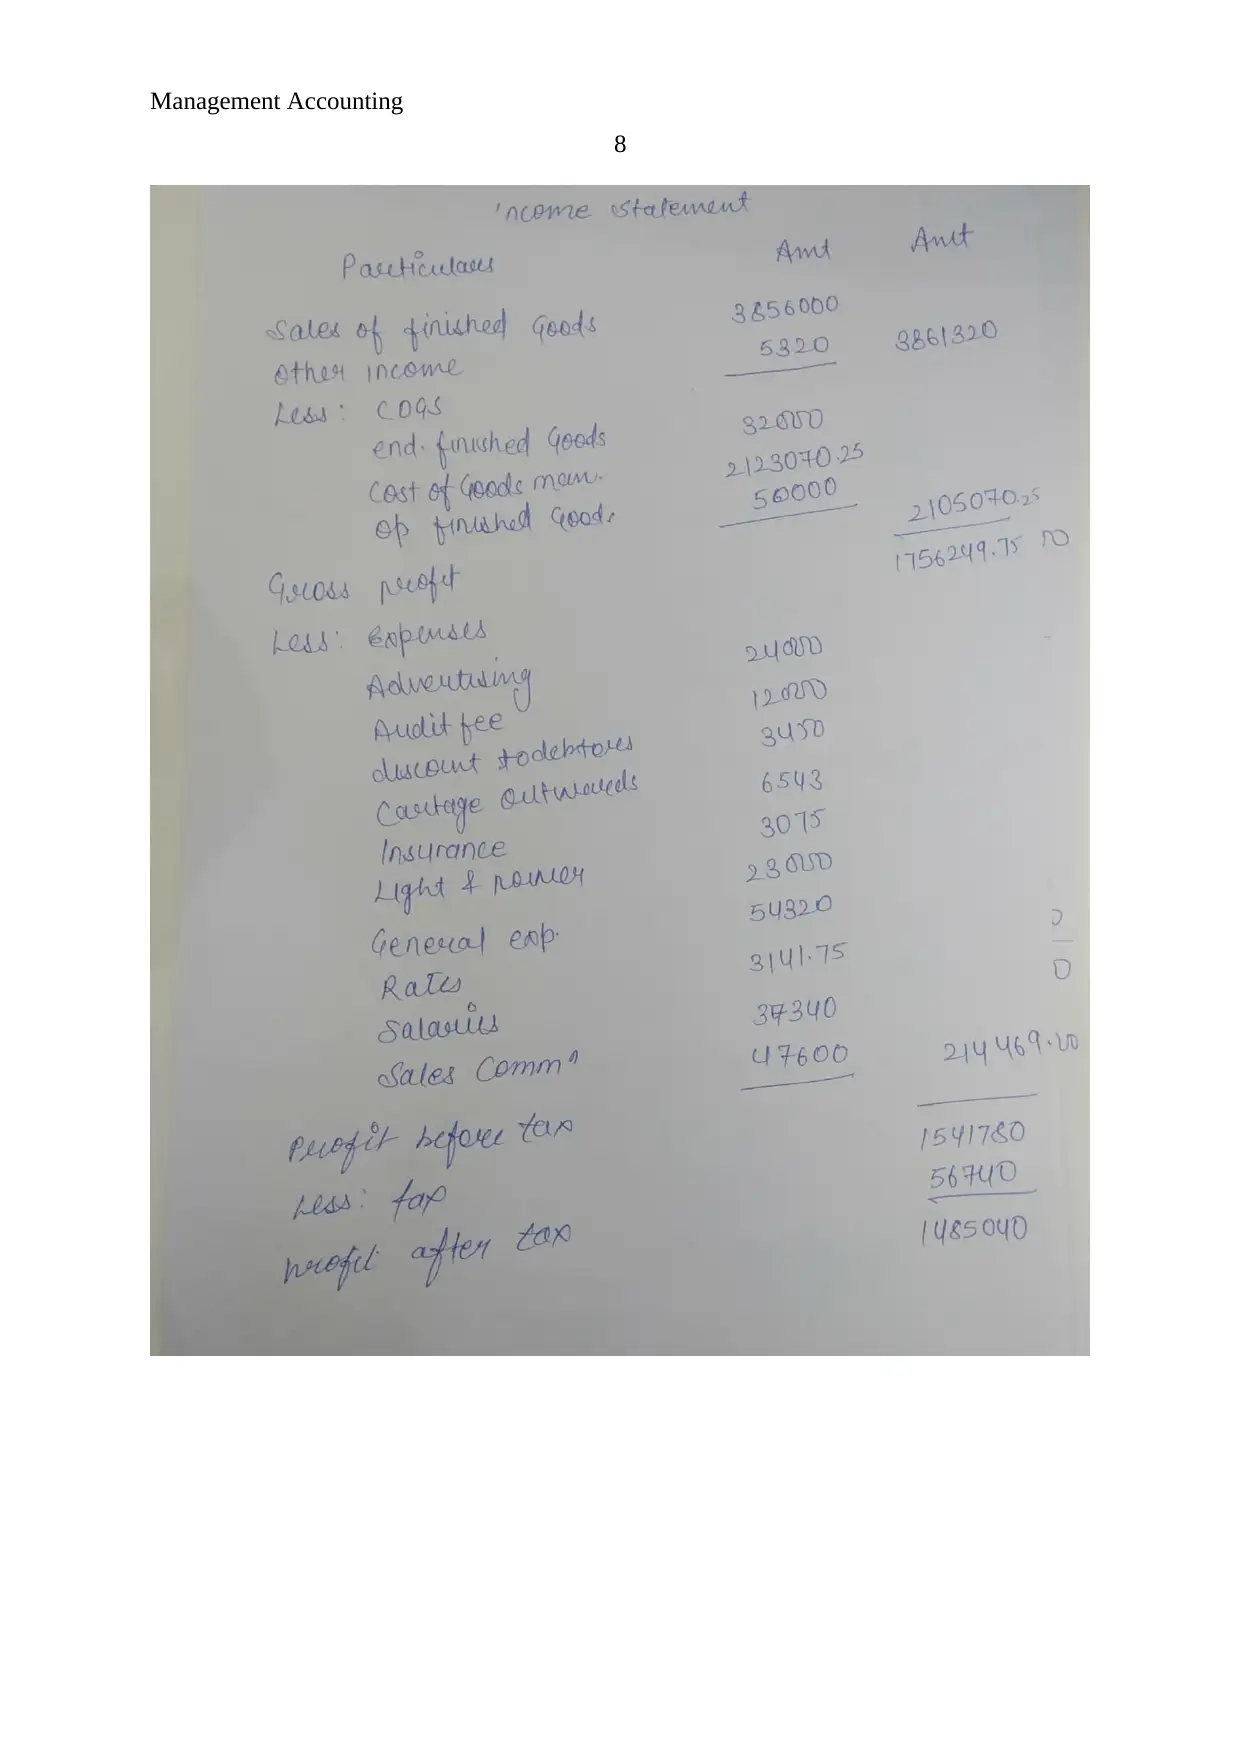 Management Accounting
8
Income Statement
Particulars Amt Amt
Sales of finished Goods 3856000
other income 5320 3861320
Less: COGS
end. finished Goods 32000
Cost of Goods man. 2123070.25
op finished Goods 50000 2105070.25
Gross profit 1756249.75
Less: Expenses
Advertising 24000
Audit fee 12000
discount to debtors 3450
Cartage outwards 6543
Insurance 3075
Light & power 23000
General exp. 54320
Rates 3141.75
Salaries 37340
Sales Commn 47600 214469.
Profit before tax 1541780
Less: tax 56740
profit after tax 1485040